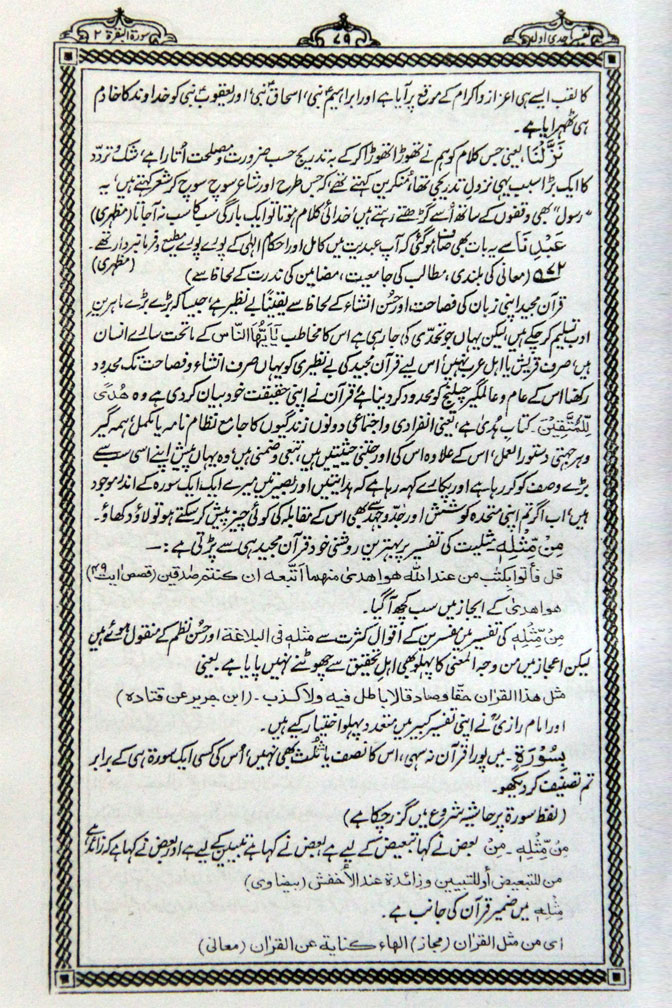 تفسیر ماجدی اول
۷۹
سورۃ البقرۃ ۲
کا لقب ایسے ہی اعزاز و اکرام کے موقع پر آیا ہے اور ابراہیمؑ نبی، اسحاقؑ نبی اور یعقوبؑ نبی کو خداوند کا خادم
ہی ٹھہرایا ہے۔
نَزَّلْنَا، یعنی جس کلام کو ہم نے تھوڑا تھوڑا کرکے بہ تدریج حسب ضرورت و مصلحت اُتارا ہے، شک و تردّد
کا ایک بڑا سبب یہی نزولِ تدریجی تھا، منکرین کہتے تھے، کہ جس طرح اور شاعر سوچ سوچ کر شعر کہتے ہیں، یہ
"رسول" بھی وقفوں کے ساتھ اُسے گڑھتے رہتے ہیں، خدائی کلام ہوتا تو ایک بارگی سب کا سب نہ آجاتا (مظہری)
عَبْدِنَا سے یہ بات بھی صاف ہوگئی کہ آپ عبدیت میں کامل اور احکام الٰہی کے پورے پورے مطیع و فرمانبردار تھے۔
۵۷۲ (معانی کی بلندی، مطالب کی جامعیت، مضامین کی ندرت کے لحاظ سے) (مظہری)
قرآن مجید اپنی زبان کی فصاحت اور حُسنِ انشاء کے لحاظ سے یقینًا بے نظیر ہے، جیسا کہ بڑے بڑے ماہرینِ
ادب تسلیم کرچکے ہیں لیکن یہاں جو تحدّی کی جارہی ہے اس کا مخاطب یٰۤاَیُّهَا النَّاس کے ماتحت سارے انسان
ہیں، صرف قریش یا اہل عرب نہیں، اس لیے قرآن مجید کی بے نظیری کو یہاں صرف انشاء و فصاحت تک محدود
رکھنا اس کے عام و عالمگیر چیلنج کو محدود کردینا ہے، قرآن نے اپنی حقیقت خود بیان کردی ہے وہ هُدًى
لِّلْمُتَّقِیْنَ کتابِ ہُدیٰ ہے، یعنی انفرادی و اجتماعی دونوں زندگیوں کا جامع نظام نامہ یا مکمل، ہمہ گیر
و ہر جہتی دستور العمل، اس کے علاوہ اس کی اور جتنی حیثیتیں ہیں، تبعی و ضمنی ہیں، وہ یہاں پیش اپنے اسی سب سے
بڑے وصف کو کر رہا ہے اور پکارے کہہ رہا ہے کہ ہدایتیں اور بصیرتیں میرے ایک ایک سورہ کے اندر موجود
ہیں، اب اگر تم اپنی متحدہ کوشش اور جدّ و جہد سے بھی اس کے مقابلہ کی کوئی چیز پیش کرسکتے ہو تو لاؤ دکھاؤ۔
مِنْ مِّثْلِهٖ، مثلیت کی تفسیر پر بہترین روشنی خود قرآن مجید ہی سے پڑتی ہے:—
قل فأتوا بکتٰب من عند اللّٰه هو اهدیٰ منهما اتّبعه ان کنتم صٰدقین (قصص آیت ۴۹)
هو اهدیٰ کے ایجاز میں سب کچھ آگیا۔
مِنْ مِّثْلِهٖ کی تفسیر میں مفسرین کے اقوال کثرت سے مثله فی البلاغة اور حُسن نظم کے منقول ہوئے ہیں
لیکن اعجاز میں من وجہ المعنیٰ کا پہلو بھی اہل تحقیق سے چھوٹنے نہیں پایا ہے یعنی
مثل هذا القراٰن حقًّا وصدقًا لا باطل فیه ولا کذب۔ (ابن جریر عن قتادة)
اور امام رازیؒ نے اپنی تفسیر کبیر میں متعدد پہلو اختیار کیے ہیں۔
بِسُوْرَةٍ۔ یعنی پورا قرآن نہ سہی، اس کا نصف یا ثُلُث بھی نہیں، اُس کی کسی ایک سورۃ ہی کے برابر
تم تصنیف کر دیکھو۔
(لفظ سورۃ پر حاشیہ شروع میں گزر چکا ہے)
مِنْ مِّثْلِهٖ۔ مِنْ بعض نے کہا تبعیض کے لیے ہے بعض نے کہا ہے تبیین کے لیے ہے اور بعض نے کہا ہے کہ زائد ہے
من للتبعیض أو للتبیین وزائدة عند الأخفش (بیضاوی)
مِثْلِهٖ میں ضمیر قرآن کی جانب ہے۔
ای من مثل القراٰن (مجاز) الهاء کنایة عن القراٰن (معالم)